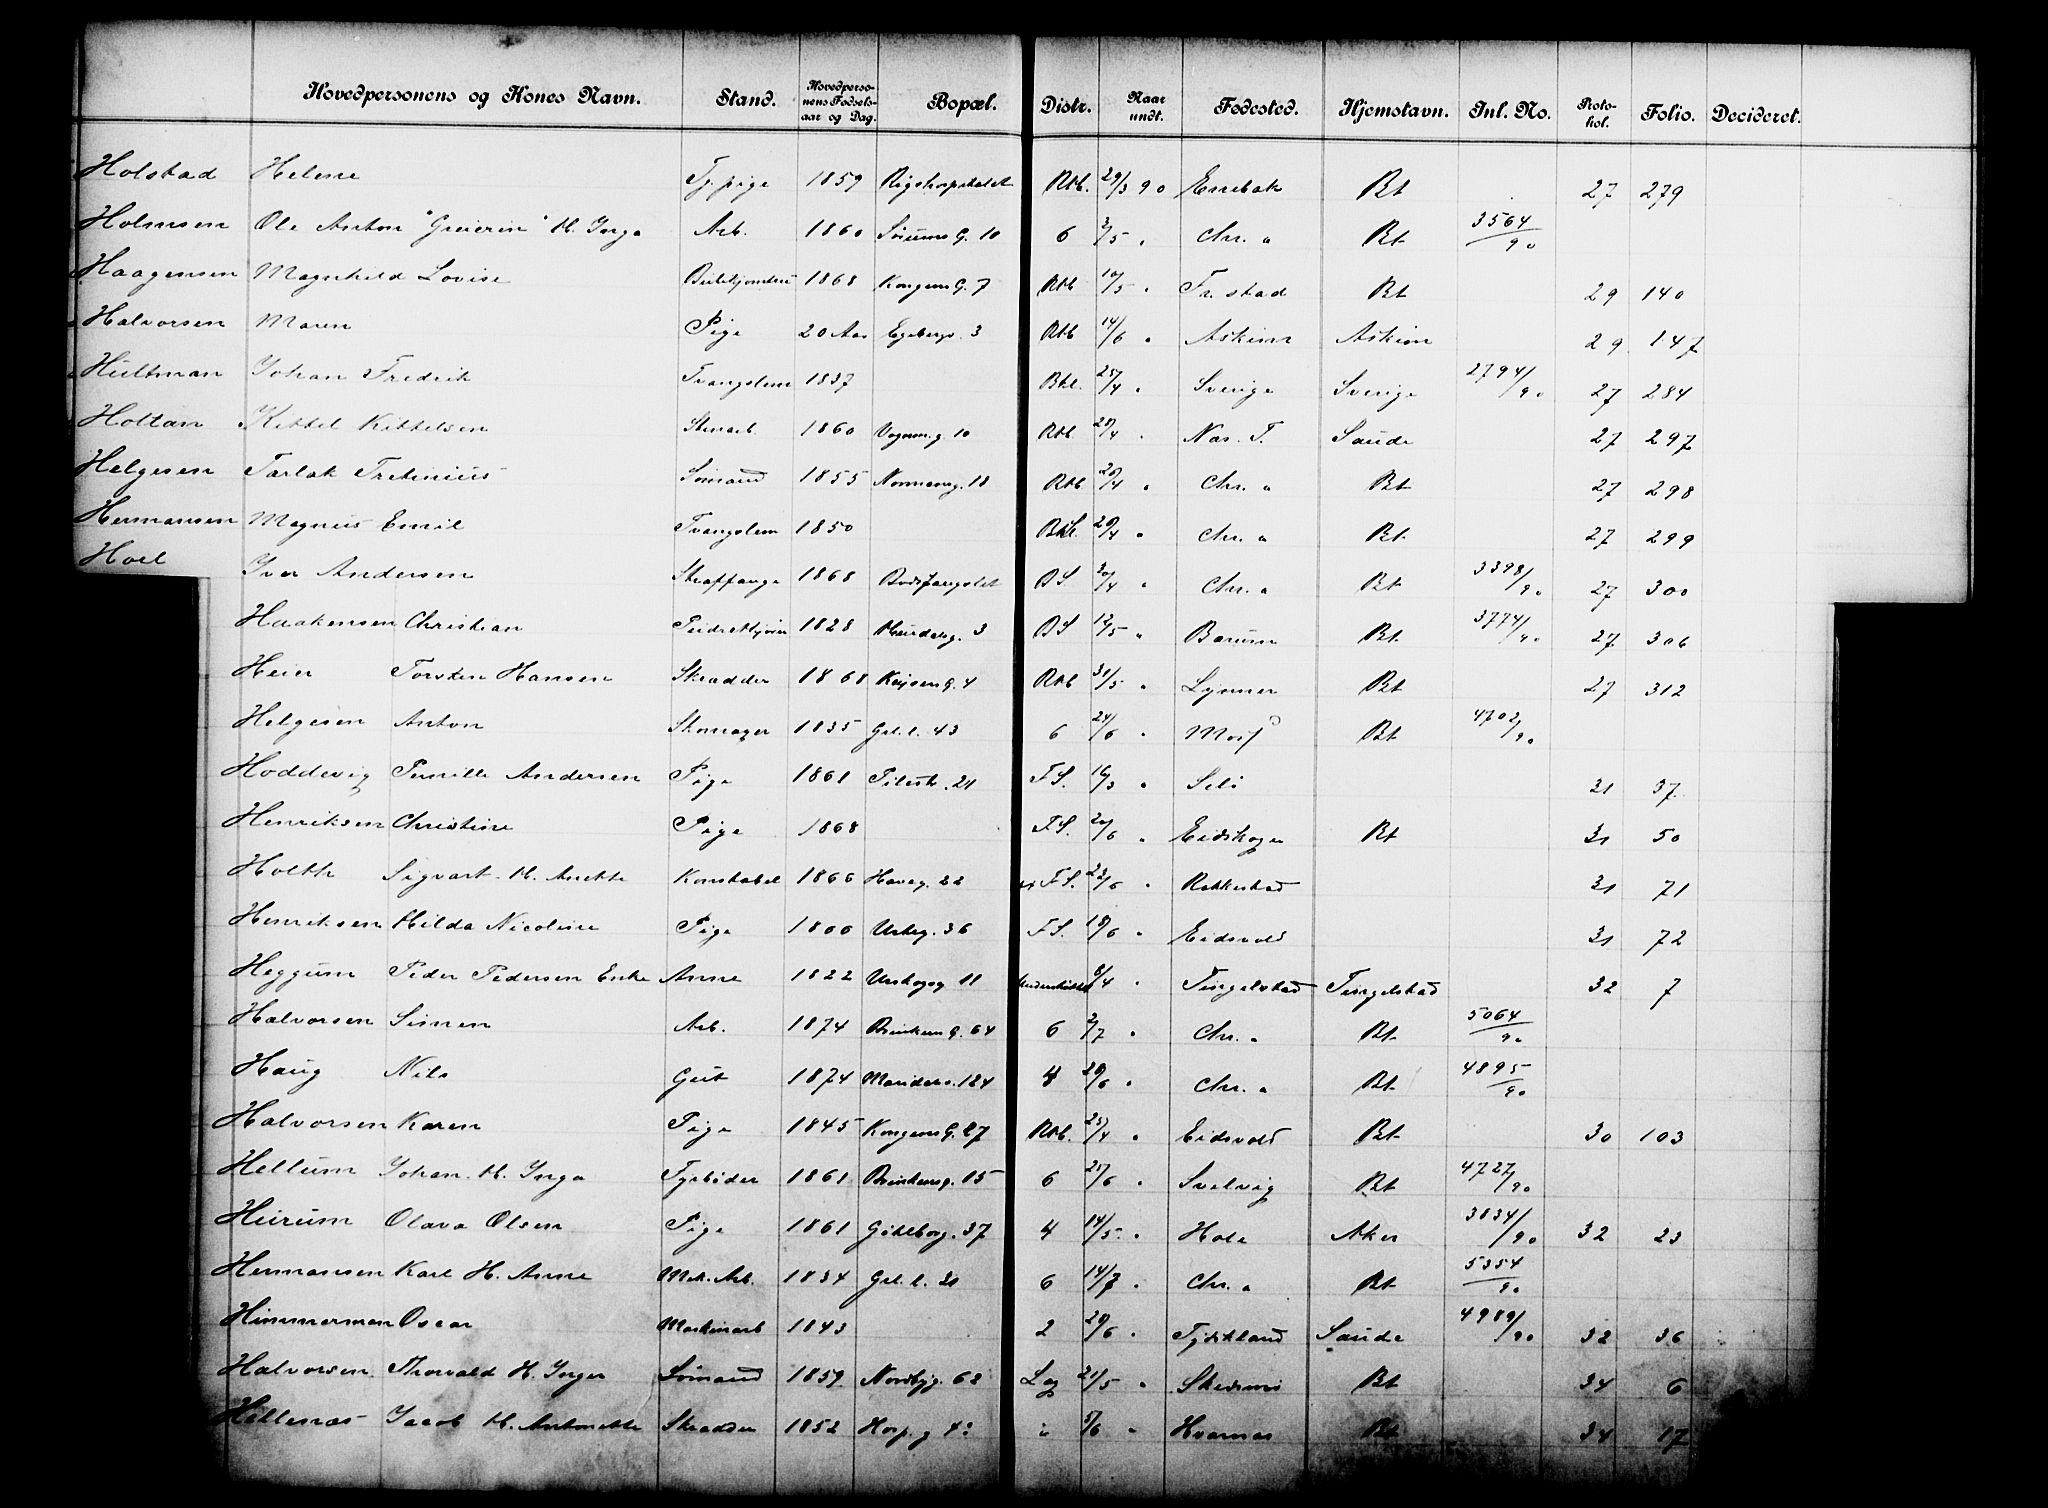 Hovedpersonens og Kones Navn. Stand. Hovedpersonens Fødselsaar og Dag. Bopæl. Distr. Naar undt. Fødested. Hjemstavn. Inl. No. Protokol. Folio. Decideret.
Holstad Helene Tj. pige 1859 Rigshospitalet Rtb. 29/3 90 Enebak Bt 27 279
Holmsen Ole Anton "Greieren" H. Inga Arb. 1860 G. 10 6 2/5 " Chr. a Bt 3564/90
Haagensen Magnhild Lovise 1868 Kongens G. 7 Rtb 10/5 " Fr. stad Bt 29 140
Halvorsen Maren Pige 20 Aar Egebergv. 3 Rtb 14/6 " Askim Askim 29 147
Hultman Johan Fredrik Tvangslem 1837 25/4 " Sverige Sverige 2794/90 27 284
Holtan Kittel Kittelsen Stenarb. 1860 Vognm.g. 10 Rtb 28/4 " Næs. T. Saude 27 297
Helgesen Tarlak Sømand 1855 Normannsg. 18 Rtb. 26/4 " Chr. a Bt 27 298
Hermansen Magnus Emil Tvangslem 1850 26/4 " Chr. a Bt 27 299
Hoel Iver Andersen Straffange 1868 Bodsfængslet BS. 30/4 " Chr. a Bt 3398/90 27 300
Haakensen Christian 1828 Heimdalsg. 3 BS 12/5 " Bærum Bt 3774/90 27 306
Heier Torsten Hansen Skrædder 1868 Keysers G. 4 Rtb 31/5 " Lynner Bt 27 312
Helgesen Anton Skomager 1835 Grl. l. 43 6 24/6 " Moss Bt 4702/90
Hoddevig Pernille Andersen Pige 1861 Pilestr. 21 FS. 16/3 " Selø 31 37
Henriksen Christine Pige 1868 FS. 20/6 " Eidskogen Bt 31 50
Holth Sigvart H. Anette Konstabel 1866 Haveg. 22 FS. 23/6 " Rakkestad 31 71
Henriksen Hilda Nicoline Pige Urteg. 36 FS. 18/6 " Eidsvold 31 72
Heggum Peder Pedersen Enke Anne 1822 11 8/4 " Tingelstad Tingelstad 32 7
Halvorsen Simen Arb. 1874 Brinkens G. 64 6 2/7 " Chr. a Bt 5064/90
Haug Nils Gut 1874 Maridalsv. 124 4 28/6 " Chr. a Bt 4895/90
Halvorsen Karen Pige 1845 Kongens G. 27 Rtb. 23/4 " Eidsvold Bt 30 103
Hellum Johan H. Inga Fyrbøder 1861 Brinkensg. 15 6 25/6 " Svelvig Bt 4727/90
Heirum Olava Olsen Pige 1861 Gøtleborg. 37 4 14/5 " Hole Aker 3834/90 32 23
Hermansen Karl H. Anne Mek. Arb. 1834 Grl. l. 21 6 14/7 " Chr. a Bt 5354/90
Himmerman Oscar Maskinarb 1843 2 28/6 " Saude 4989/90 32 36
Halvorsen Thorvald H. Inger Sømand 1859 Nordbyg. 62 Lag 21/5 " Skedsmo Bt 34 6
Hillenæs Jacob H. Antonette Skrædder 1852 Hosp. g " 5/6 " Hvarnæs Bt 34 17